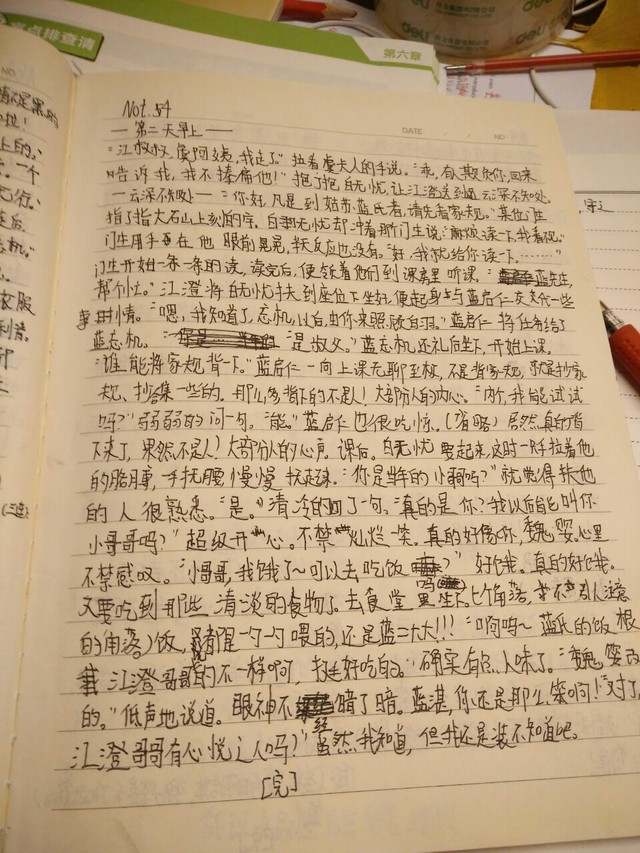 亮点排查清
第六章
deli
deli
Not.54
DATE
NO
—第二天早上—
"江叔叔,虞阿姨,我走了。"拉着虞夫人的手说。"乖,有人欺负你,回来
告诉我,我不揍扁他!"抱了抱白无忧,让江澄送到云深不知处
—云深不知处—"你好,凡是到姑苏蓝氏者,请先看家规。"其他门生
指了指大石山上刻的字。白无忧却冲着那门生说:"麻烦读一下,我看不见。"
门生用手在他眼前晃晃,半天反应也没有。"好,我就给你读一下……"
门生开始一条一条的读,读完后,便领着他们到课房里听课。"蓝先生,
帮个忙。"江澄将白无忧扶到座位下坐好,便起身与蓝启仁交代一些
事情。"嗯,我知道了,忘机,以后由你来照顾白羽。"蓝启仁将任务给了
蓝忘机。"是叔父。"蓝忘机还礼后坐下,开始上课,
"谁能将家规背一下。"蓝启仁一向上课无聊至极,不是背家规,就是抄家
规、抄合集一些的。那么多背下的不是人!大部分人的内心。"内个,我能试试
吗?"弱弱的问一句。"能。"蓝启仁也很吃惊。(省略)居然真的背
下来了,果然不是人!大部分人的心声。课后。白无忧要起来,这时一只手拉着他
的胳膊,一手扶腰,慢慢扶起来。"你是当年的小哥吗?"就觉得扶他
的人很熟悉。"是。"清冷的回了一句。"真的是你?我以后能叫你
小哥哥吗?"超级开心。不禁灿烂一笑。真的好像你,魏婴,心里
不禁感叹。"小哥哥,我饿了~可以去吃饭吗?"好饿。真的好饿。
又要吃到那些清淡的食物了。去食堂里坐下。(角落,不引人注意
的角落)饭,都是一勺一勺喂的,还是蓝二大大!!!"啊呜~蓝氏的饭根
江澄哥哥的不一样啊,挺好吃的。"确实有点人味了。"魏婴改
的。"低声地说道。眼神不经暗了暗。蓝湛,你还是那么笨啊!"对了,
江澄哥哥有心悦之人吗?"虽然我知道,但我还是装不知道吧。
[完]